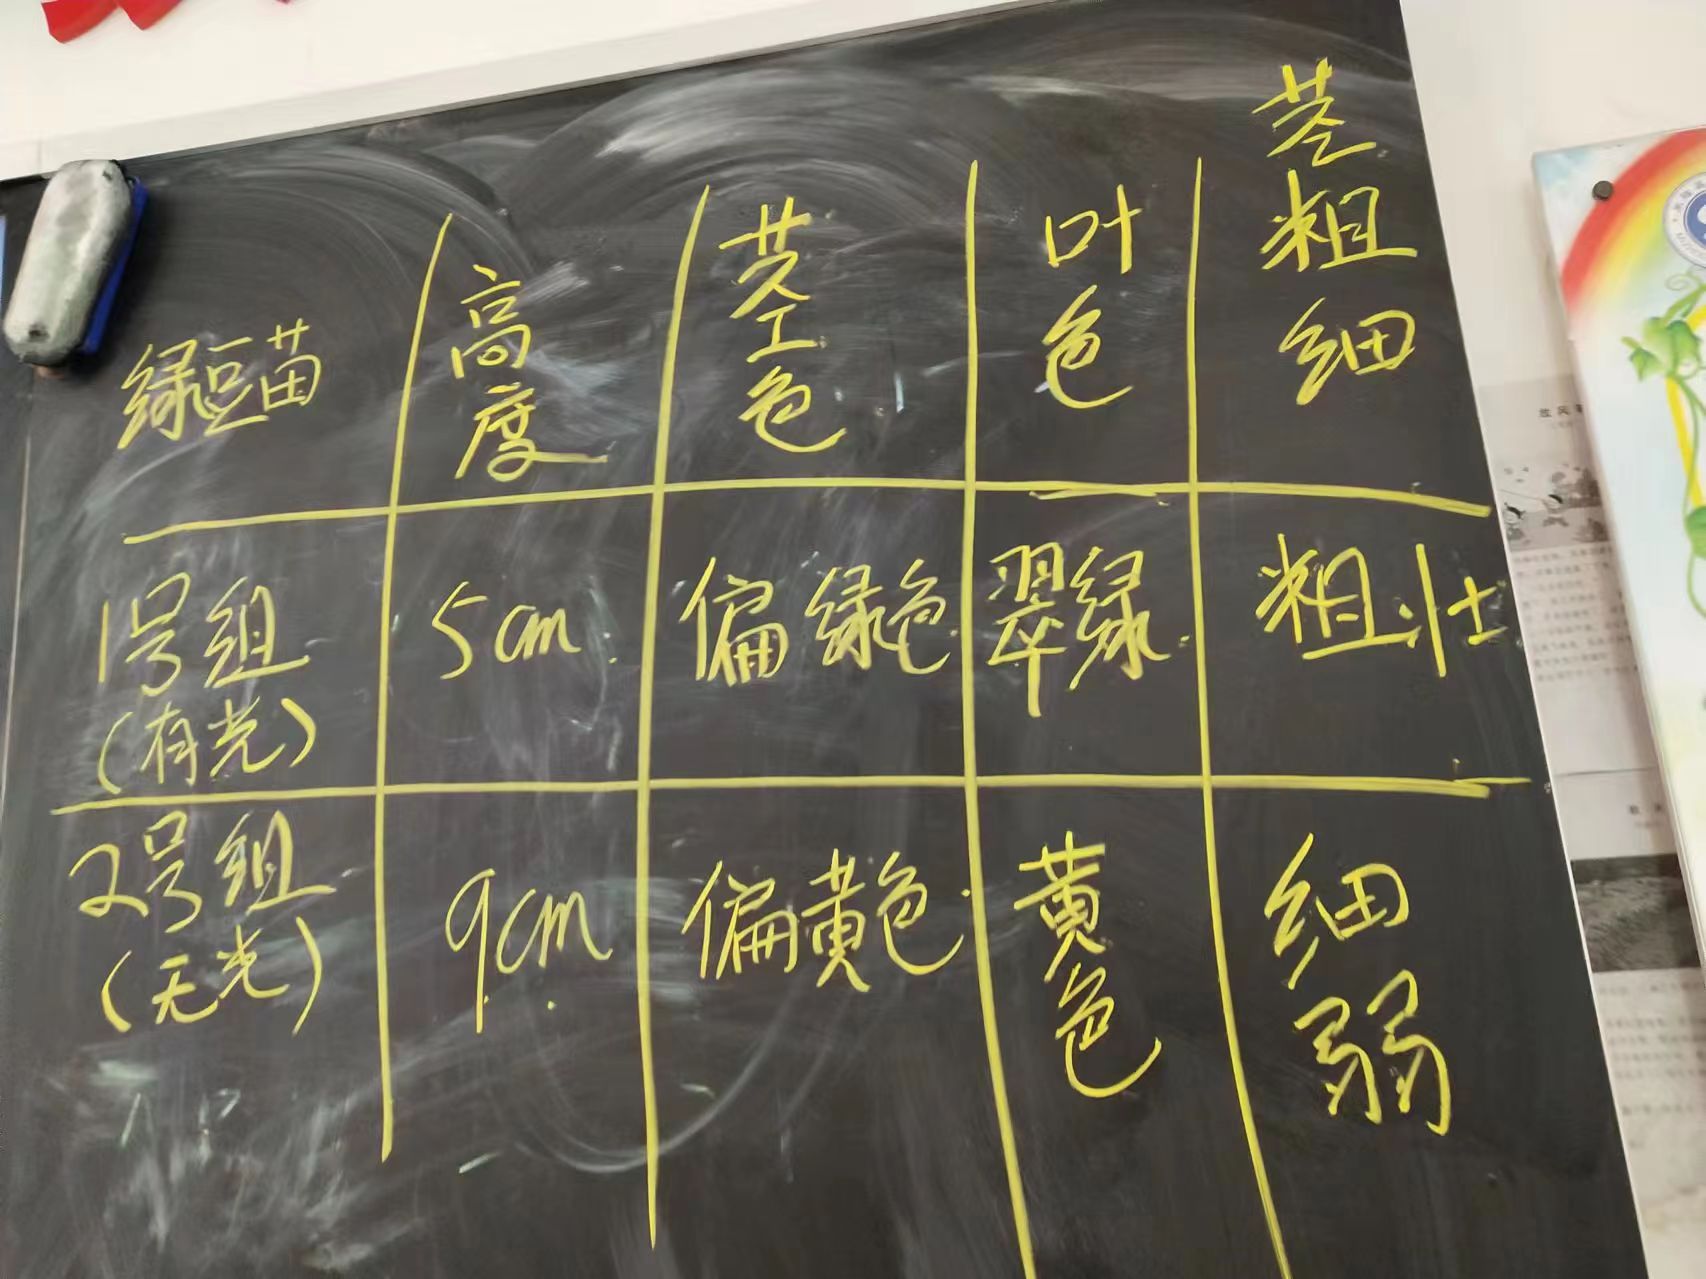 绿豆苗 高度 茎色 叶色 茎粗细
1号组(有光) 5cm 偏绿色 翠绿 粗壮
2号组(无光) 9cm 偏黄色 黄色 细弱